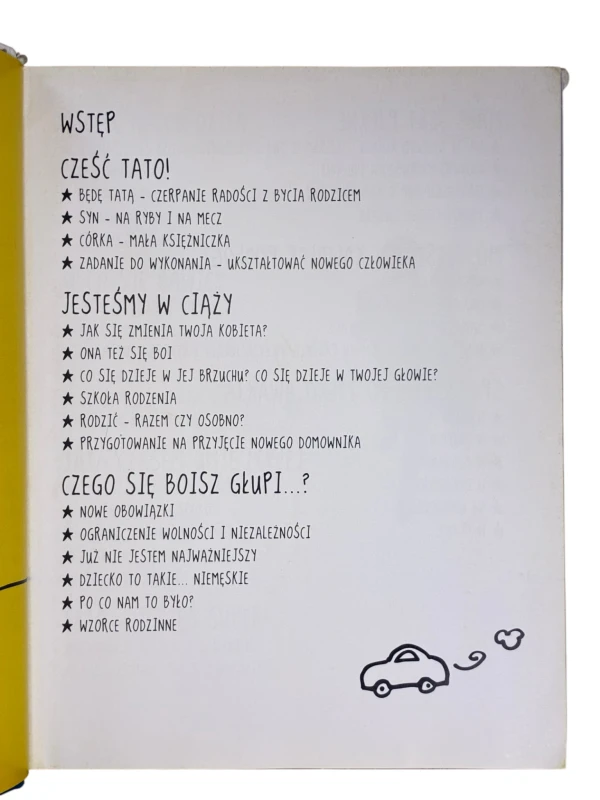 WSTĘP
CZEŚĆ TATO!
★ BĘDĘ TATĄ - CZERPANIE RADOŚCI Z BYCIA RODZICEM
★ SYN - NA RYBY I NA MECZ
★ CÓRKA - MAŁA KSIĘŻNICZKA
★ ZADANIE DO WYKONANIA - UKSZTAŁTOWAĆ NOWEGO CZŁOWIEKA
JESTEŚMY W CIĄŻY
★ JAK SIĘ ZMIENIA TWOJA KOBIETA?
★ ONA TEŻ SIĘ BOI
★ CO SIĘ DZIEJE W JEJ BRZUCHU? CO SIĘ DZIEJE W TWOJEJ GŁOWIE?
★ SZKOŁA RODZENIA
★ RODZIĆ - RAZEM CZY OSOBNO?
★ PRZYGOTOWANIE NA PRZYJĘCIE NOWEGO DOMOWNIKA
CZEGO SIĘ BOISZ GŁUPI...?
★ NOWE OBOWIĄZKI
★ OGRANICZENIE WOLNOŚCI I NIEZALEŻNOŚCI
★ JUŻ NIE JESTEM NAJWAŻNIEJSZY
★ DZIECKO TO TAKIE... NIEMĘSKIE
★ PO CO NAM TO BYŁO?
★ WZORCE RODZINNE